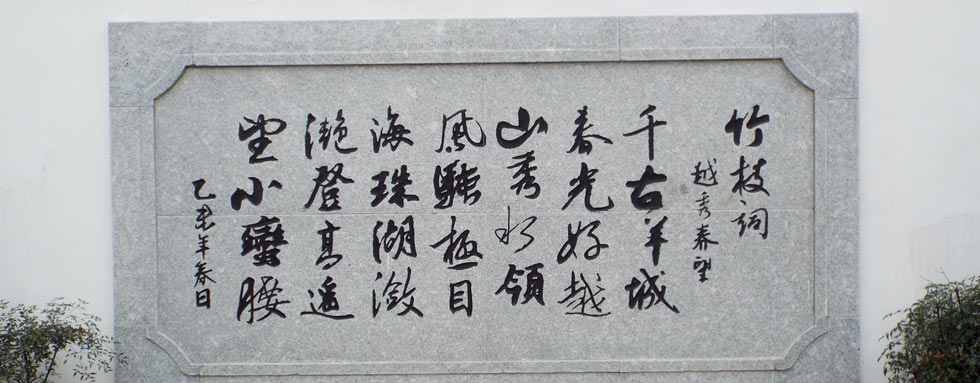 竹枝词
越秀春望
千古羊城
春光好越
山秀水领
風騷極目
海珠湖潋
滟登高遥
望小蠻腰
乙未年春日